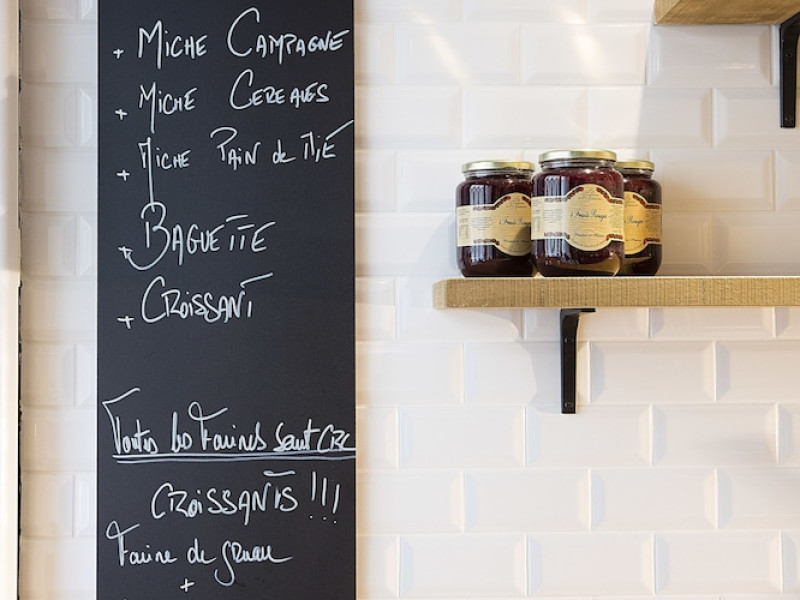 + MICHE CAMPAGNE
+ MICHE CEREALES
+ MICHE PAIN de MIE
+ BAGUETTE
+ CROISSANT
Toutes les Farines sont CRC
CROISSANTS !!!
Farine de gruau
+
4 Fruits Rouges